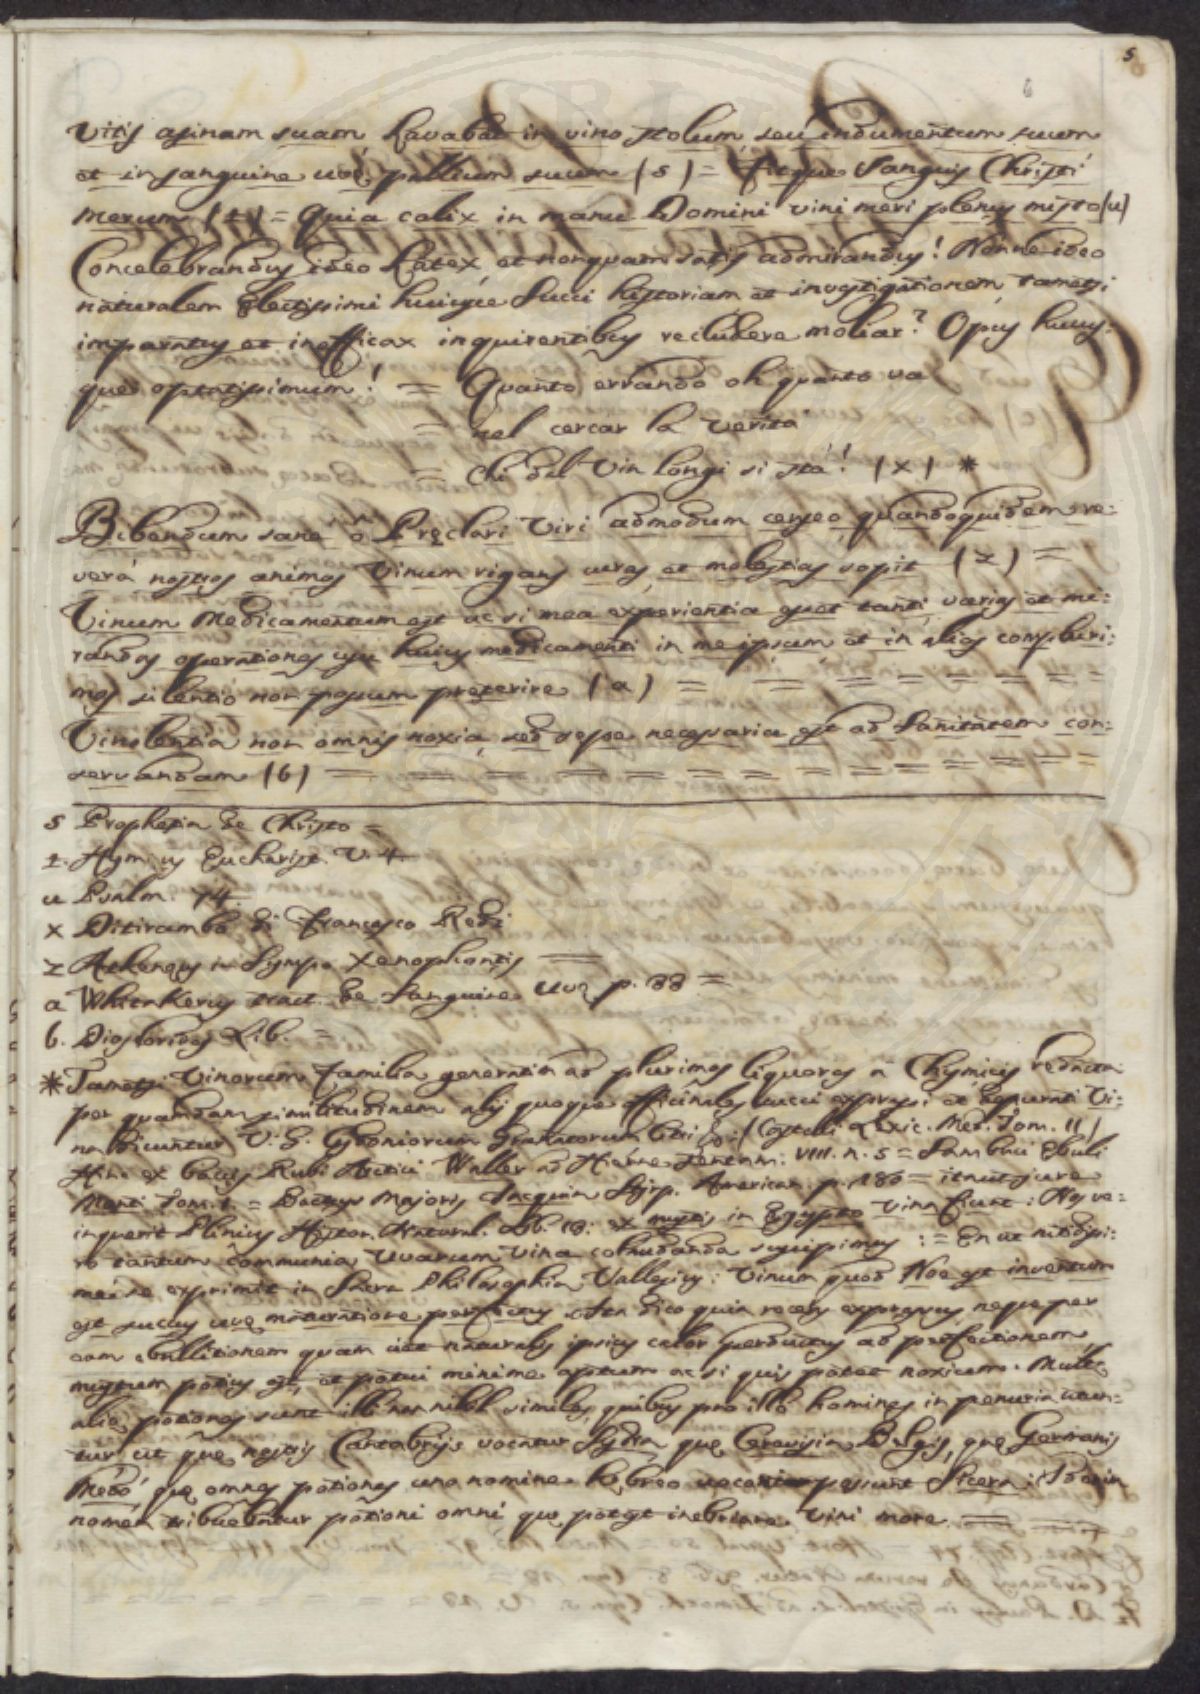 5
Vitis asinam suam. Lavabat in vino stolam, seù indumentum suum
et in sanguine uvę pallium suum (s) = Fitque Sanguis Christi
merum (t) = Quia calix in manu Domini vini meri plenus misto (u)
Concelebrandus ideo Latex, et nonquam satis admirandus! Nonne ideo
naturalem Electissimi huiusce Succi historiam et investigationem tametsi
imparatus et inefficax inquirentibus recludere moliar? Opus huius-
que optatissimum! = Quanto errando oh quanto va
= nel cercar la verita
= chi dal Vin longi si stà! (x) *
Bibendum sanè ò Pręclari Viri admodum censeo, quandoquidem re-
verà nostros animos Vinum rigans curas et molestias sopit (z) =
Vinum Medicamentum est ac si mea experientia esset tanti, varias et mi-
randas operationes usu huius medicamenti in me ipsum et in alios compluri-
mos silentio non possum pręterire (a) = = = = = = = =
Vinolentia non omnis noxia, sed sępe necessaria est ad Sanitatem con-
servandam (b) = = = = = = = = = = = = =
s Prophetia de Christo =
t. Hymnus Eucharist. V. 4
u Psalm. 74.
x Ditirambo di Francesco Redi
z Athenęus in Sympo. Xenophontis =
a Whitakerus tract. de Sanguine uvę p. 88 =
b. Dioscorides Lib. =
* Tametsi Vinorum Familia generatim ad plurimos liquores à Chymicis redacta
per quamdam similitudinem alij quoque officinales succi expressi et depurati Vi-
na dicuntur V. G. Cydoniorum Granatorum Citri &: (Castelli Lexic. Med. Tom. 11)
Hinc ex baccis Rubi Arctici Waller ad Hierne Tentam: VIII. n. 5 = Sambuci Ebuli
Manti Tom. 1 = Bactrys Majoris Jacquin Stirp. American. p. 180 = itaut jure
inquerit Plinius Histor. Natural. Lib. 13: ex myxis in Egypto Vina fiunt: Nos ve-
rò tantum communia Uvarum Vina collaudanda suscipimus: = En ut nitidissi-
me rem exprimit in Sacra Philosophia Vallesius: Vinum quod Noe est inventum
est succus uvę maturatione perfectus, ita dico quia recens expressus neque per
eam ebullitionem quam ciet naturalis ipsius calor perductus ad perfectionem
mustum potius est, et potui minime aptum ac si quis potet noxium. Multę
alię potiones sunt illi non nihil similes, quibus pro illo homines in penuria utun-
tur ut quę nostris Cantabrijs vocatur Sydra, quę Cerevisia Belgis, quę Germanis
Medò quę omnes potiones uno nomine Hebreo vocari possunt Sicera: Id enim
nomen tribuebatur potioni omni quę potest inebriare Vini more. =